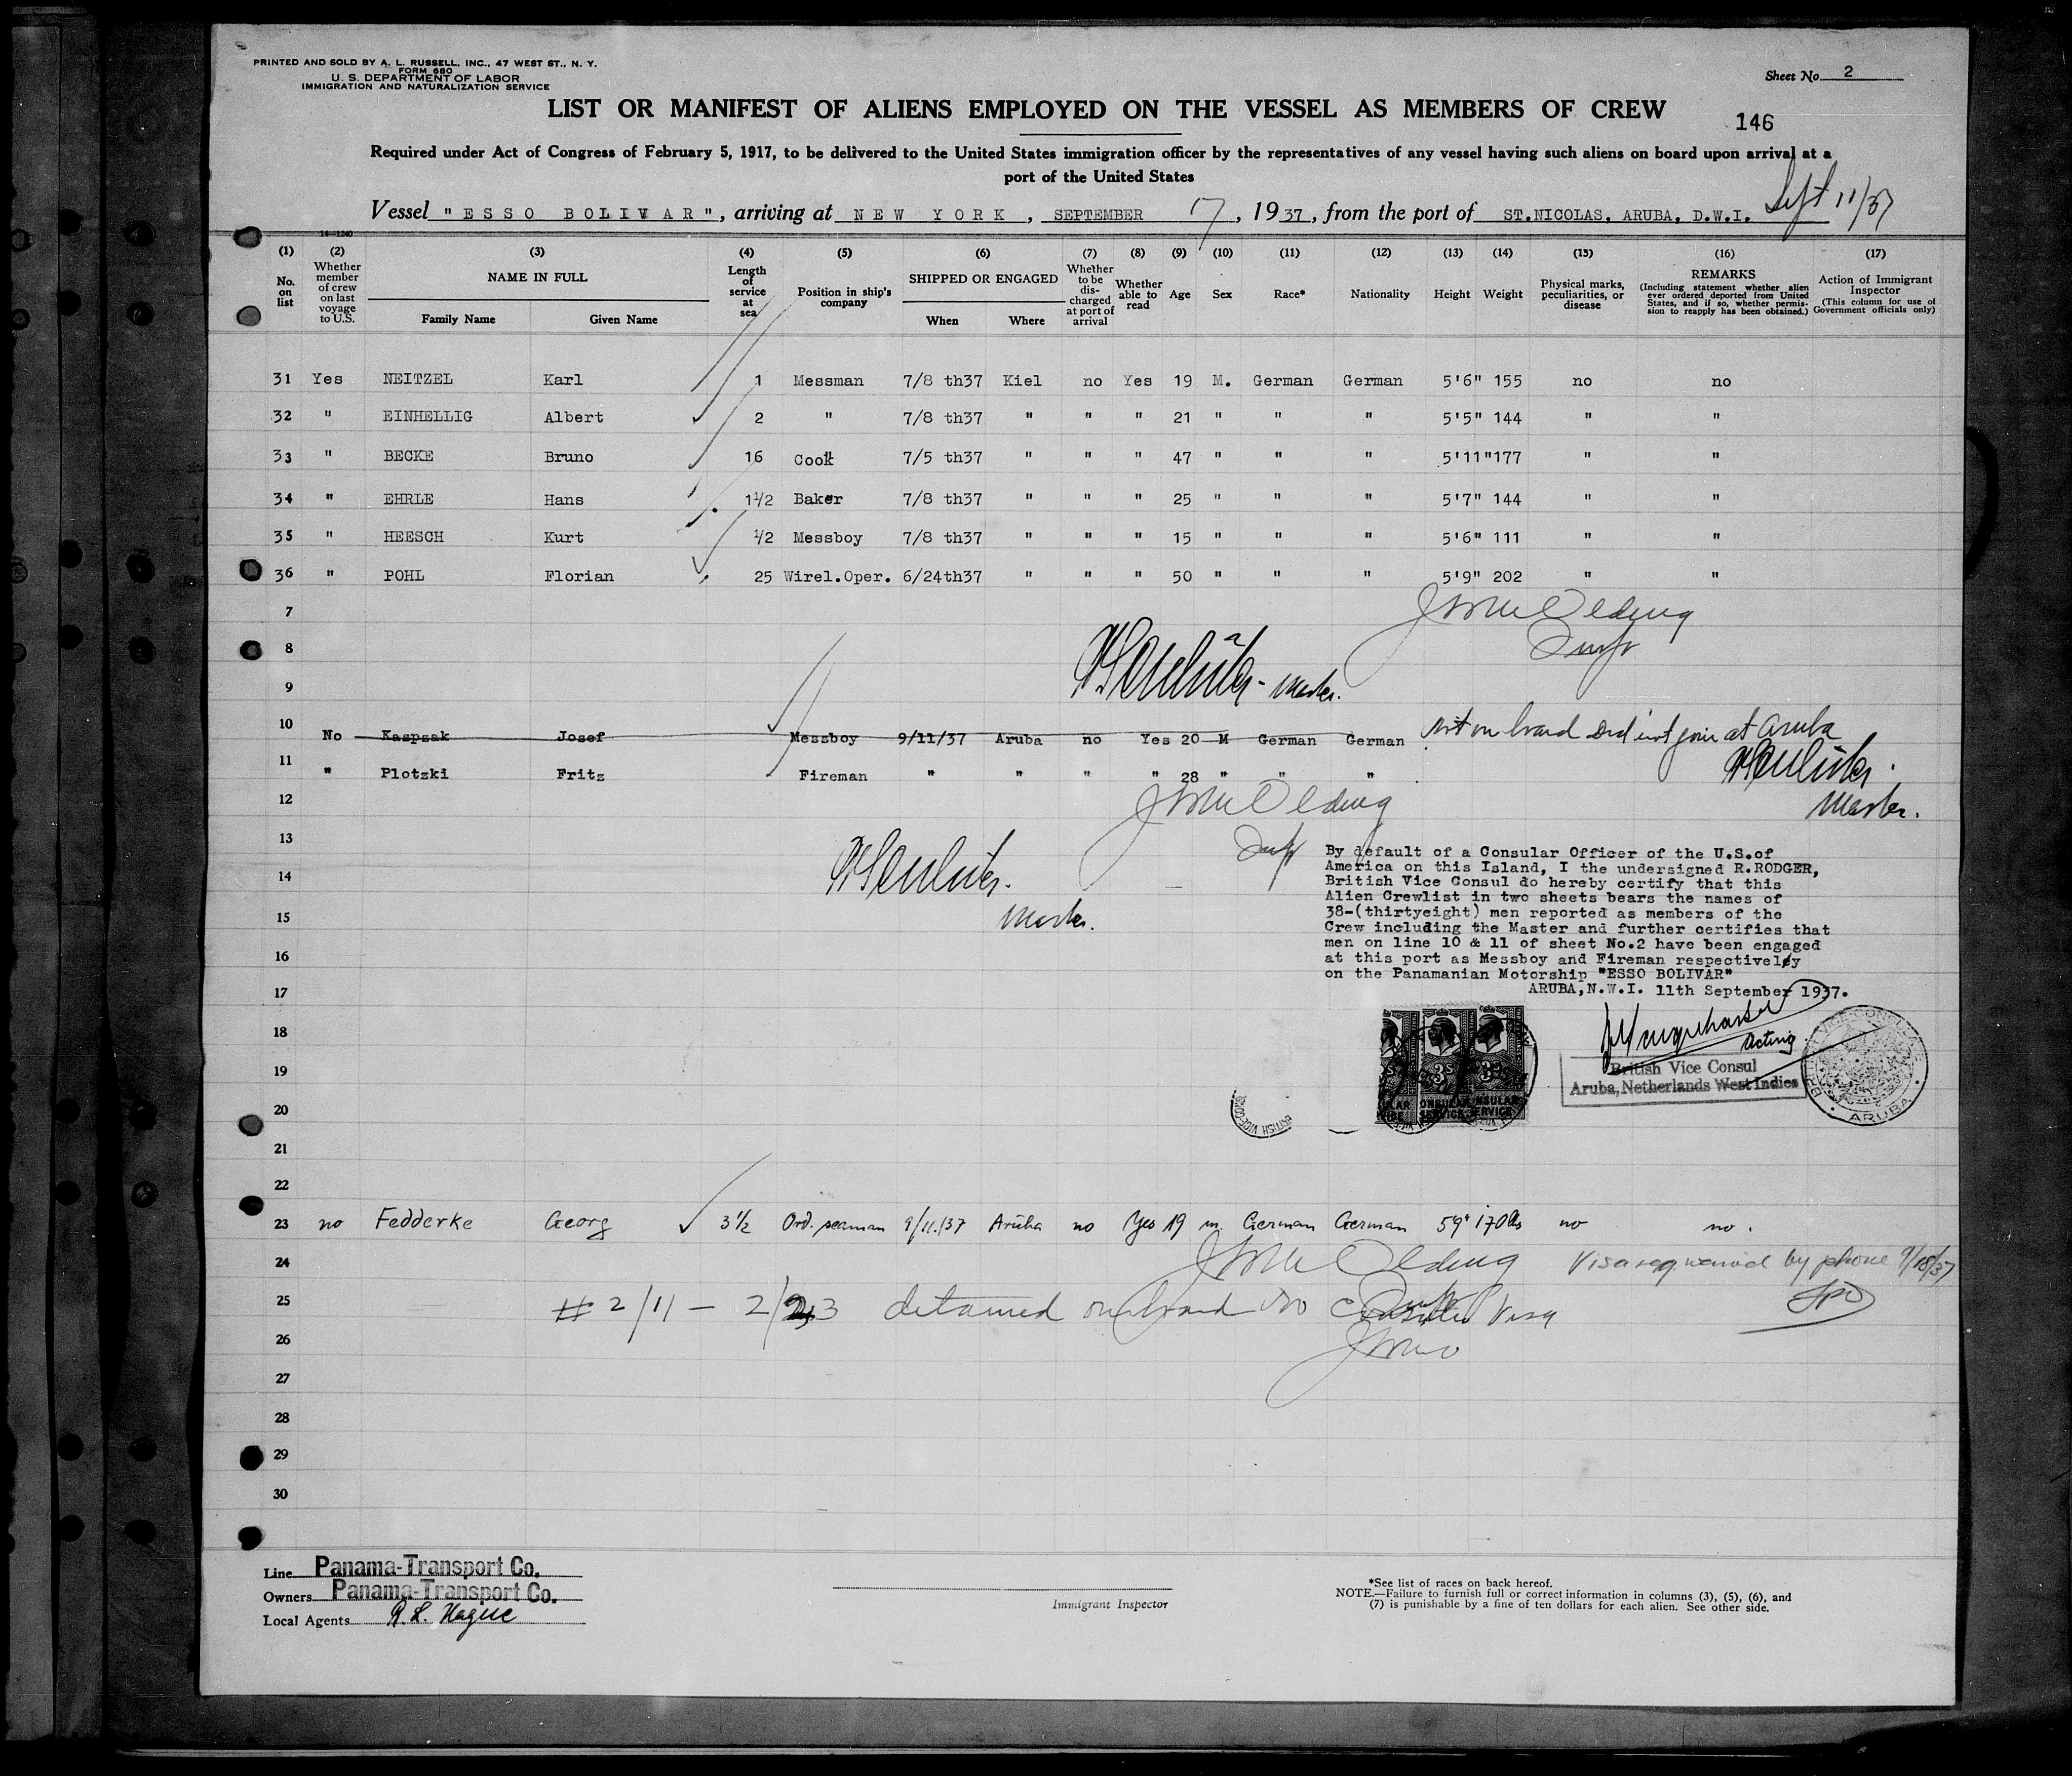 PRINTED AND SOLD BY A. L. RUSSELL, INC., 47 WEST ST., N. Y.
FORM 680
U. S. DEPARTMENT OF LABOR
IMMIGRATION AND NATURALIZATION SERVICE
Sheet No. 2
LIST OR MANIFEST OF ALIENS EMPLOYED ON THE VESSEL AS MEMBERS OF CREW
146
Required under Act of Congress of February 5, 1917, to be delivered to the United States immigration officer by the representatives of any vessel having such aliens on board upon arrival at a
port of the United States
Vessel "ESSO BOLIVAR", arriving at NEW YORK, SEPTEMBER 17, 1937, from the port of ST.NICOLAS, ARUBA, D.W.I. Sept 11/37
14-1240
(1) (2) (3) (4) (5) (6) (7) (8) (9) (10) (11) (12) (13) (14) (15) (16) (17)
No. on list
Whether member of crew on last voyage to U.S.
NAME IN FULL
Family Name Given Name
Length of service at sea
Position in ship's company
SHIPPED OR ENGAGED
When Where
Whether to be discharged at port of arrival
Whether able to read
Age
Sex
Race*
Nationality
Height
Weight
Physical marks, peculiarities, or disease
REMARKS
(Including statement whether alien ever ordered deported from United States, and if so, whether permission to reapply has been obtained.)
Action of Immigrant Inspector
(This column for use of Government officials only)
31 Yes NEITZEL Karl 1 Messman 7/8 th37 Kiel no Yes 19 M. German German 5'6" 155 no no
32 " EINHELLIG Albert 2 " 7/8 th37 " " " 21 " " " 5'5" 144 " "
33 " BECKE Bruno 16 Cook 7/5 th37 " " " 47 " " " 5'11" 177 " "
34 " EHRLE Hans 1½ Baker 7/8 th37 " " " 25 " " " 5'7" 144 " "
35 " HEESCH Kurt ½ Messboy 7/8 th37 " " " 15 " " " 5'6" 111 " "
36 " POHL Florian 25 Wirel.Oper. 6/24th37 " " " 50 " " " 5'9" 202 " "
7
8
9 Master.
10 No Kaspsak Josef Messboy 9/11/37 Aruba no Yes 20 M German German Not on board Did not join at Aruba
11 " Plotzki Fritz Fireman " " " " 28 " " "
Master.
12
13
14
15 Master.
By default of a Consular Officer of the U.S.of
America on this Island, I the undersigned R.RODGER,
British Vice Consul do hereby certify that this
Alien Crewlist in two sheets bears the names of
38-(thirtyeight) men reported as members of the
Crew including the Master and further certifies that
men on line 10 & 11 of sheet No.2 have been engaged
at this port as Messboy and Fireman respectively
on the Panamanian Motorship "ESSO BOLIVAR"
ARUBA,N.W.I. 11th September 1937.
16
17
18
Acting
British Vice Consul
Aruba, Netherlands West Indies
BRITISH VICE-CONSULATE ARUBA
3S 3S
CONSULAR SERVICE
BRITISH VICE-CON
19
20
21
22
23 no Fedderke Georg 3½ Ord. seaman 9/11./37 Aruba no Yes 19 m. German German 5'9" 170 lbs no no.
24 Visa req waived by phone 9/18/37
25 # 2/11 — 2/23 detained on board no Consular Visa
26
27
28
29
30
Line Panama-Transport Co.
Owners Panama-Transport Co.
Local Agents R. L. Hague
Immigrant Inspector
*See list of races on back hereof.
NOTE.—Failure to furnish full or correct information in columns (3), (5), (6), and
(7) is punishable by a fine of ten dollars for each alien. See other side.